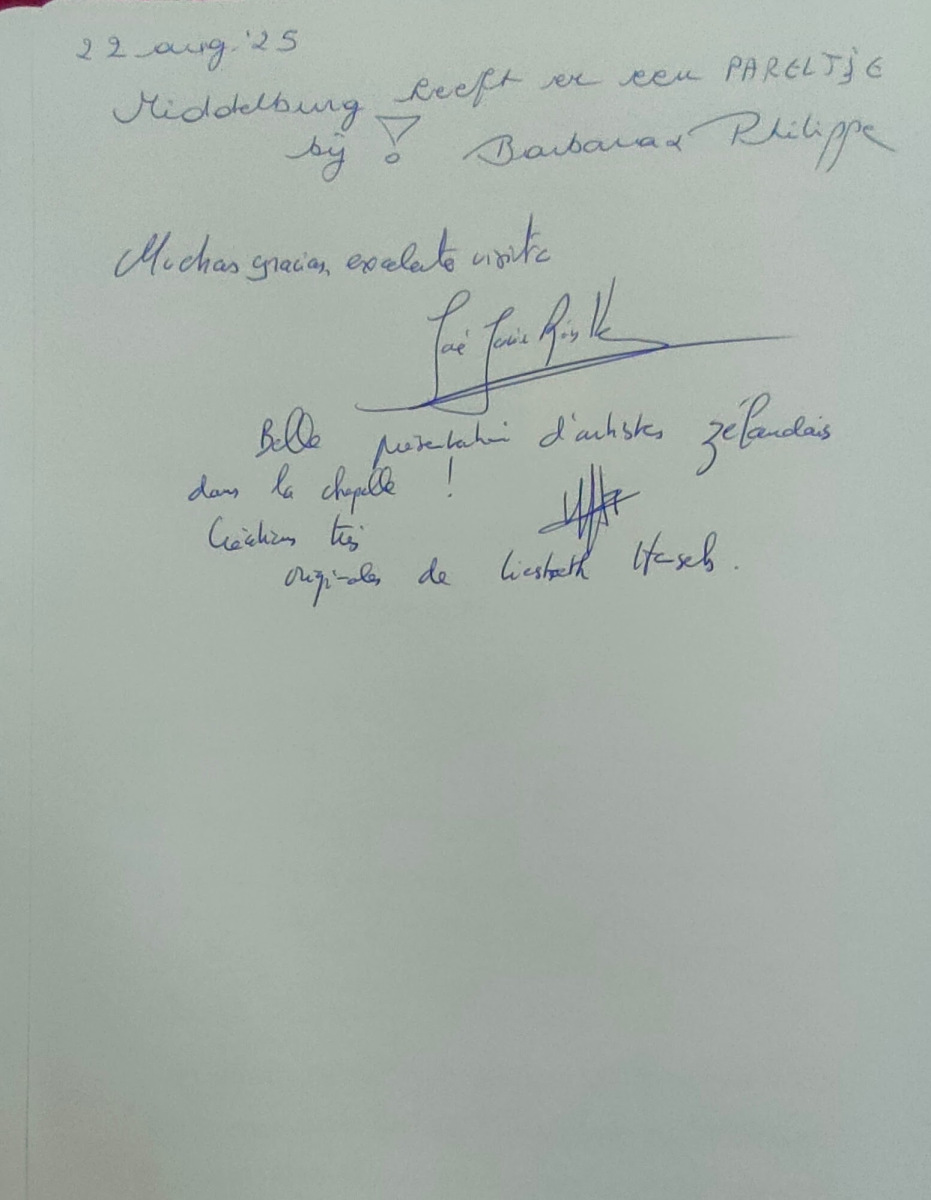 22 aug. '25
Middelburg heeft er een PARELTJE
bij ! Barbara & Philippe
Muchas gracias, excelente visita
José
Belle présentation d'artistes zélandais
dans la chapelle !
Créations très
originales de Liesbeth